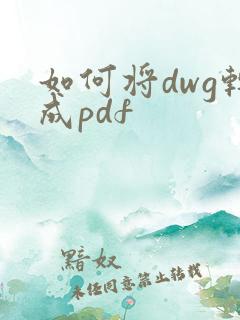 如何将dwg转
成pdf
黯奴
未经同意禁止转载